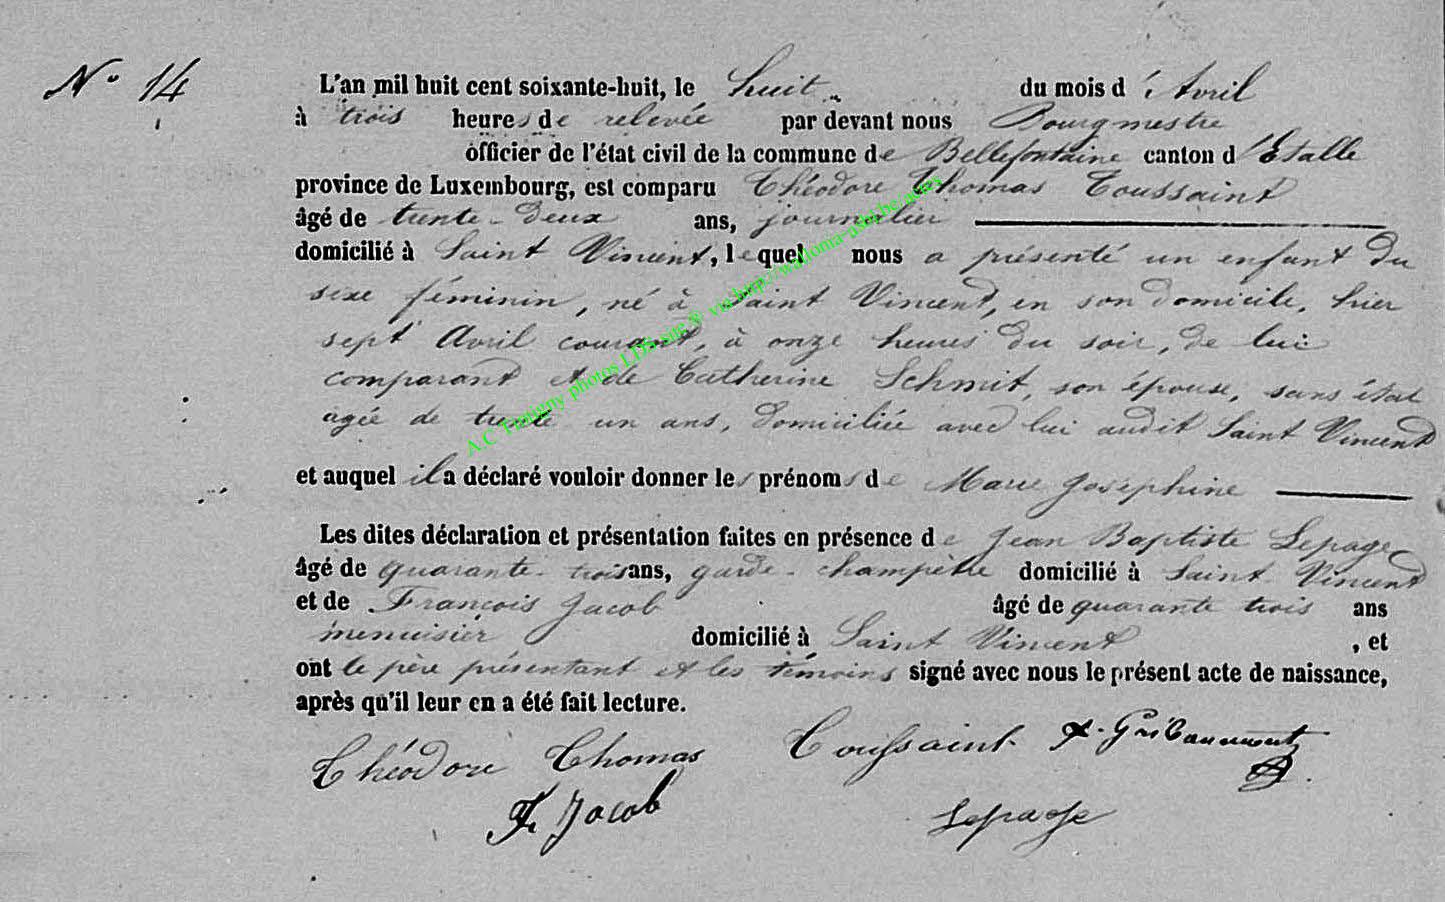 N° 14
L'an mil huit cent soixante-huit, le huit du mois d'Avril
à trois heures de relevée par devant nous Bourgmestre
officier de l'état civil de la commune de Bellefontaine canton d'Etalle
province de Luxembourg, est comparu Théodore Thomas Toussaint
âgé de trente-deux ans, journalier
domicilié à Saint Vincent, lequel nous a présenté un enfant du
sexe féminin, né à Saint Vincent, en son domicile, hier
sept Avril courant, à onze heures du soir, de lui
comparant et de Catherine Schmit, son épouse, sans état
agée de trente un ans, domiciliée avec lui audit Saint Vincent
et auquel il a déclaré vouloir donner les prénoms de Marie Josephine
Les dites déclaration et présentation faites en présence de Jean Baptiste Lepage
âgé de quarante-trois ans, garde-champêtre domicilié à Saint Vincent
et de François Jacob âgé de quarante trois ans
menuisier domicilié à Saint Vincent, et
ont le père présentant et les témoins signé avec nous le présent acte de naissance,
après qu'il leur en a été fait lecture.
Théodore Thomas Toussaint
F. Jacob Lepage
A.C Tintigny photos LDS site @ via http://wallonia-asbl.be/actes